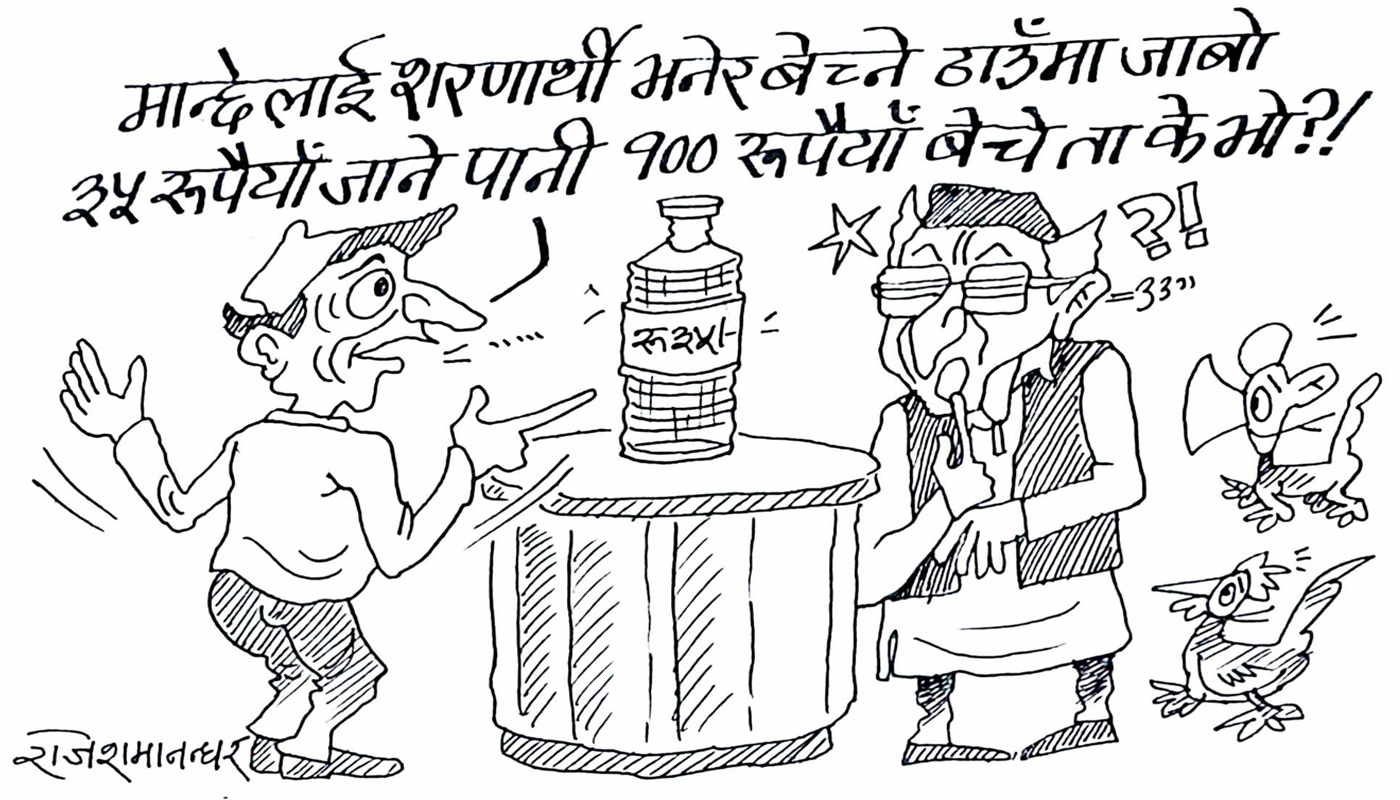 मान्छेलाई शरणार्थी भनेर बेच्ने ठाउँमा जाबो
३५ रूपैयाँ जाने पानी १०० रूपैयाँ बेचे ता के भो?!
?!
रू ३५।-
राजशमानन्धर